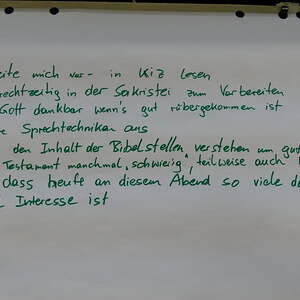 eite mich vor - in KiZ lesen
rechtzeitig in der Sakristei zum Vorbereiten
Gott dankbar wenn's gut rübergekommen ist
e Sprechtechniken aus
den Inhalt der Bibelstellen verstehen um gut
Testament manchmal "schwierig", teilweise auch
dass heute an diesem Abend so viele d
Interesse ist